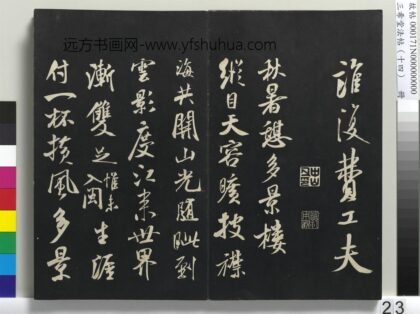 远方书画网-www.yfshuhua.com
故帖 000171N000000000
三希堂法帖（十四） 冊
誰復費工夫
秋暑憩多景樓
縱目天容曠披襟
海共開山光隨眺到
雲影度江來世界
漸雙足惟未入閩生涯
付一杯横風多景
23